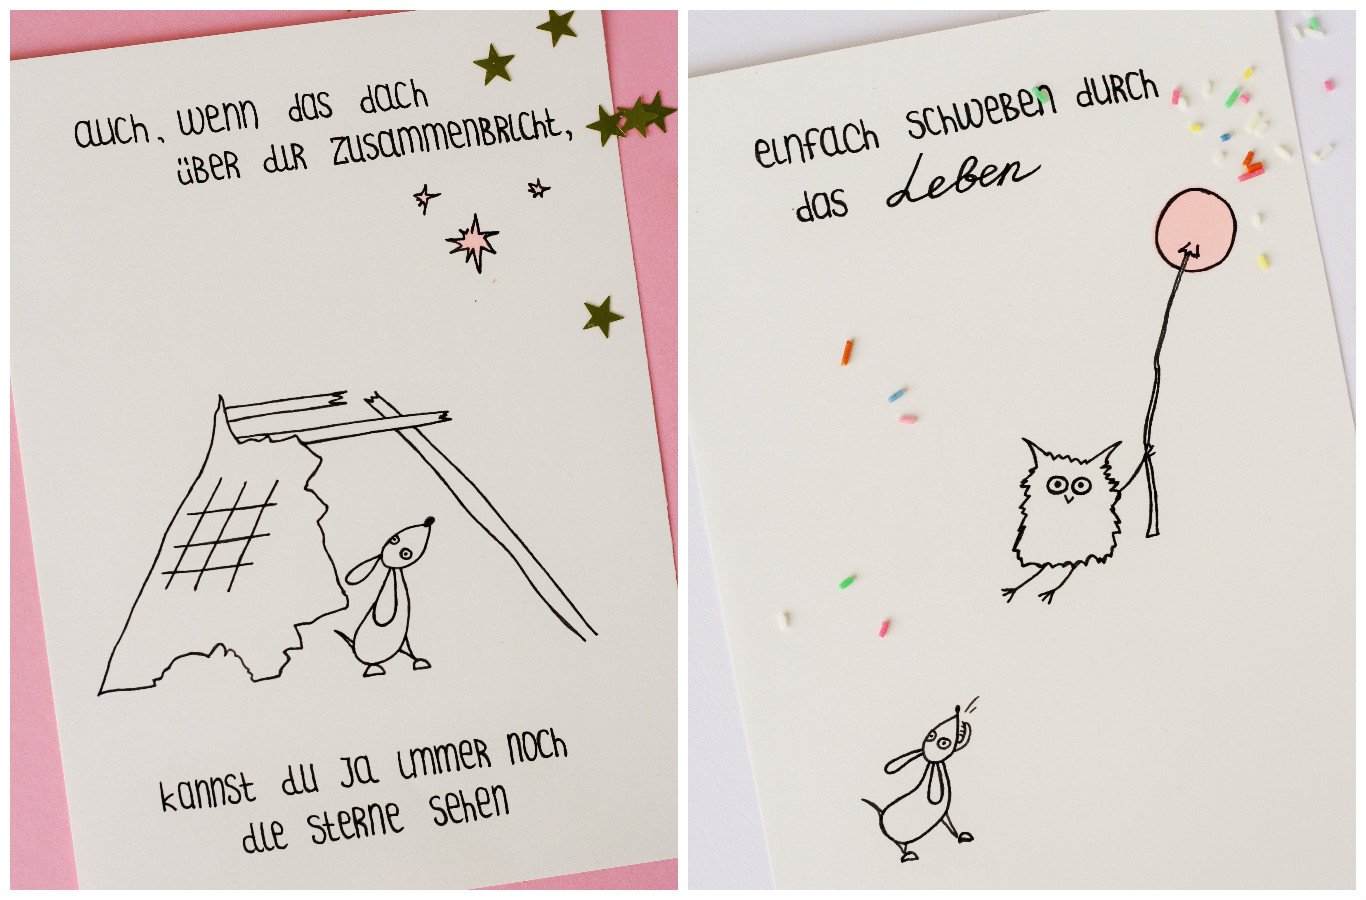 auch, wenn das dach
über dir zusammenbricht,
kannst du ja immer noch
die sterne sehen
einfach schweben durch
das Leben